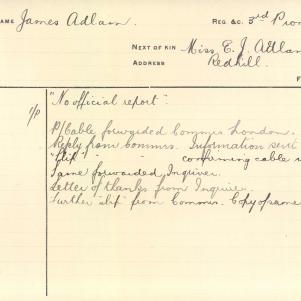 NAME James Adlam. REG &C. 3rd Pion
NEXT OF KIN Miss E. J. Adlam
ADDRESS Redhill.
"No official report".
P/Cable forwarded Commrs London.
Reply from Commrs. Information sent
"Slip" " " confirming cable
Same forwarded Inquirer.
Letter of thanks from Inquirer.
Further "slip" from Commrs. Copy of same